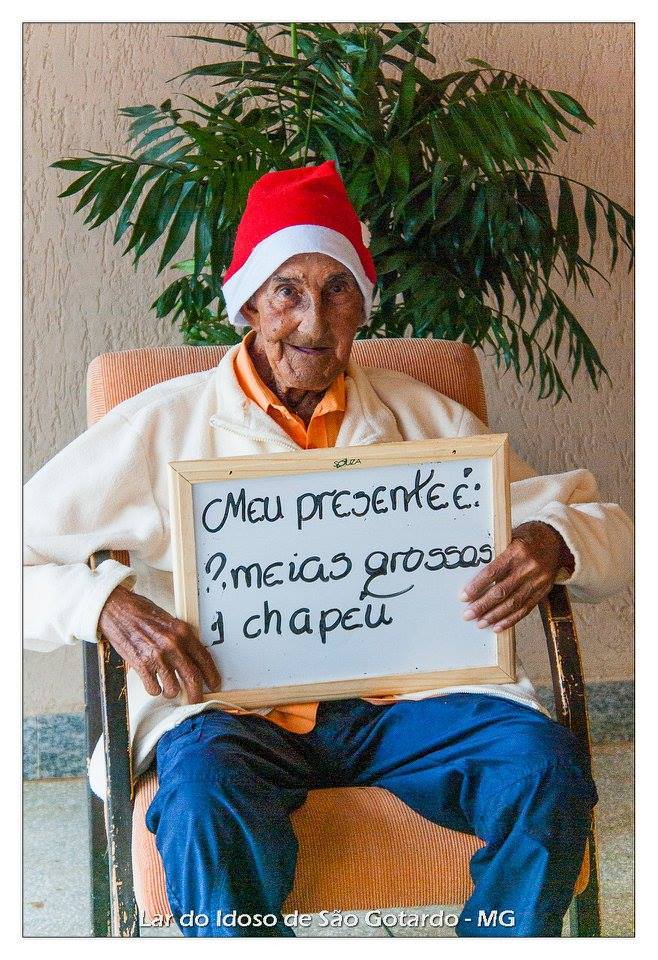 SOUZA
Meu presente é:
2 meias grossas
1 chapeu
Lar do Idoso de São Gotardo - MG